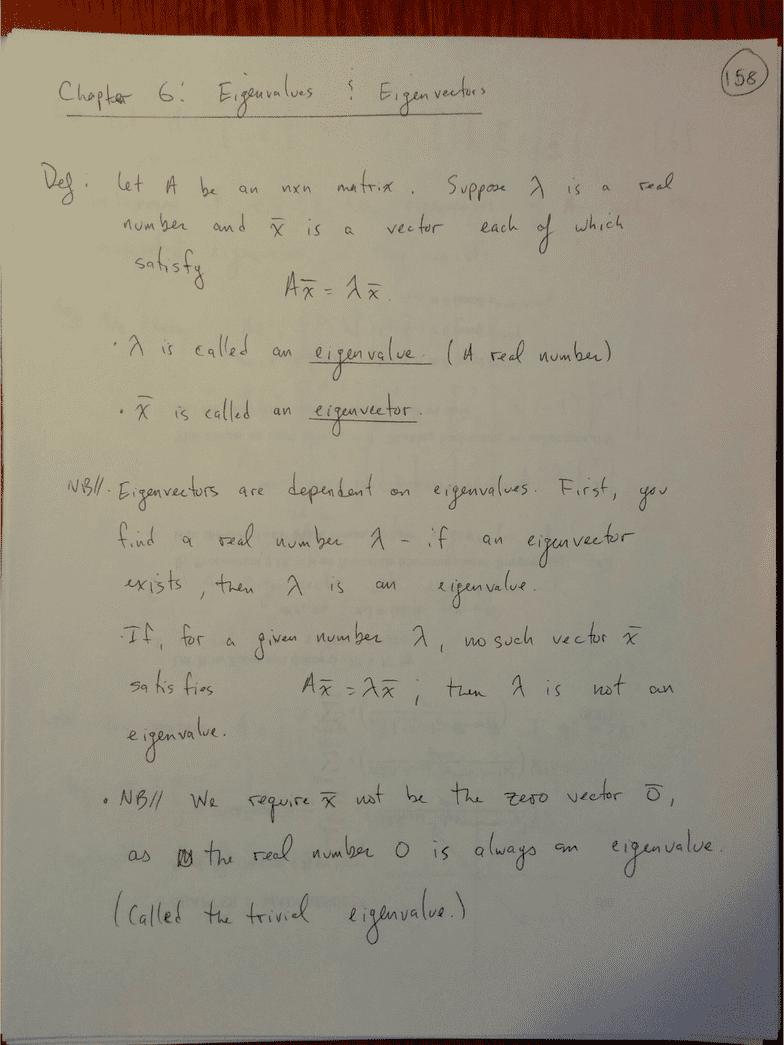 158
Chapter 6: Eigenvalues & Eigenvectors
Def: Let A be an nxn matrix. Suppose λ is a real
number and x̄ is a vector each of which
satisfy
Ax̄ = λx̄.
· λ is called an eigenvalue. (A real number)
· x̄ is called an eigenvector.
NB// · Eigenvectors are dependent on eigenvalues. First, you
find a real number λ - if an eigenvector
exists, then λ is an eigenvalue.
· If, for a given number λ, no such vector x̄
satisfies Ax̄ = λx̄; then λ is not an
eigenvalue.
· NB// We require x̄ not be the zero vector 0̄,
as the real number 0 is always an eigenvalue.
(Called the trivial eigenvalue.)